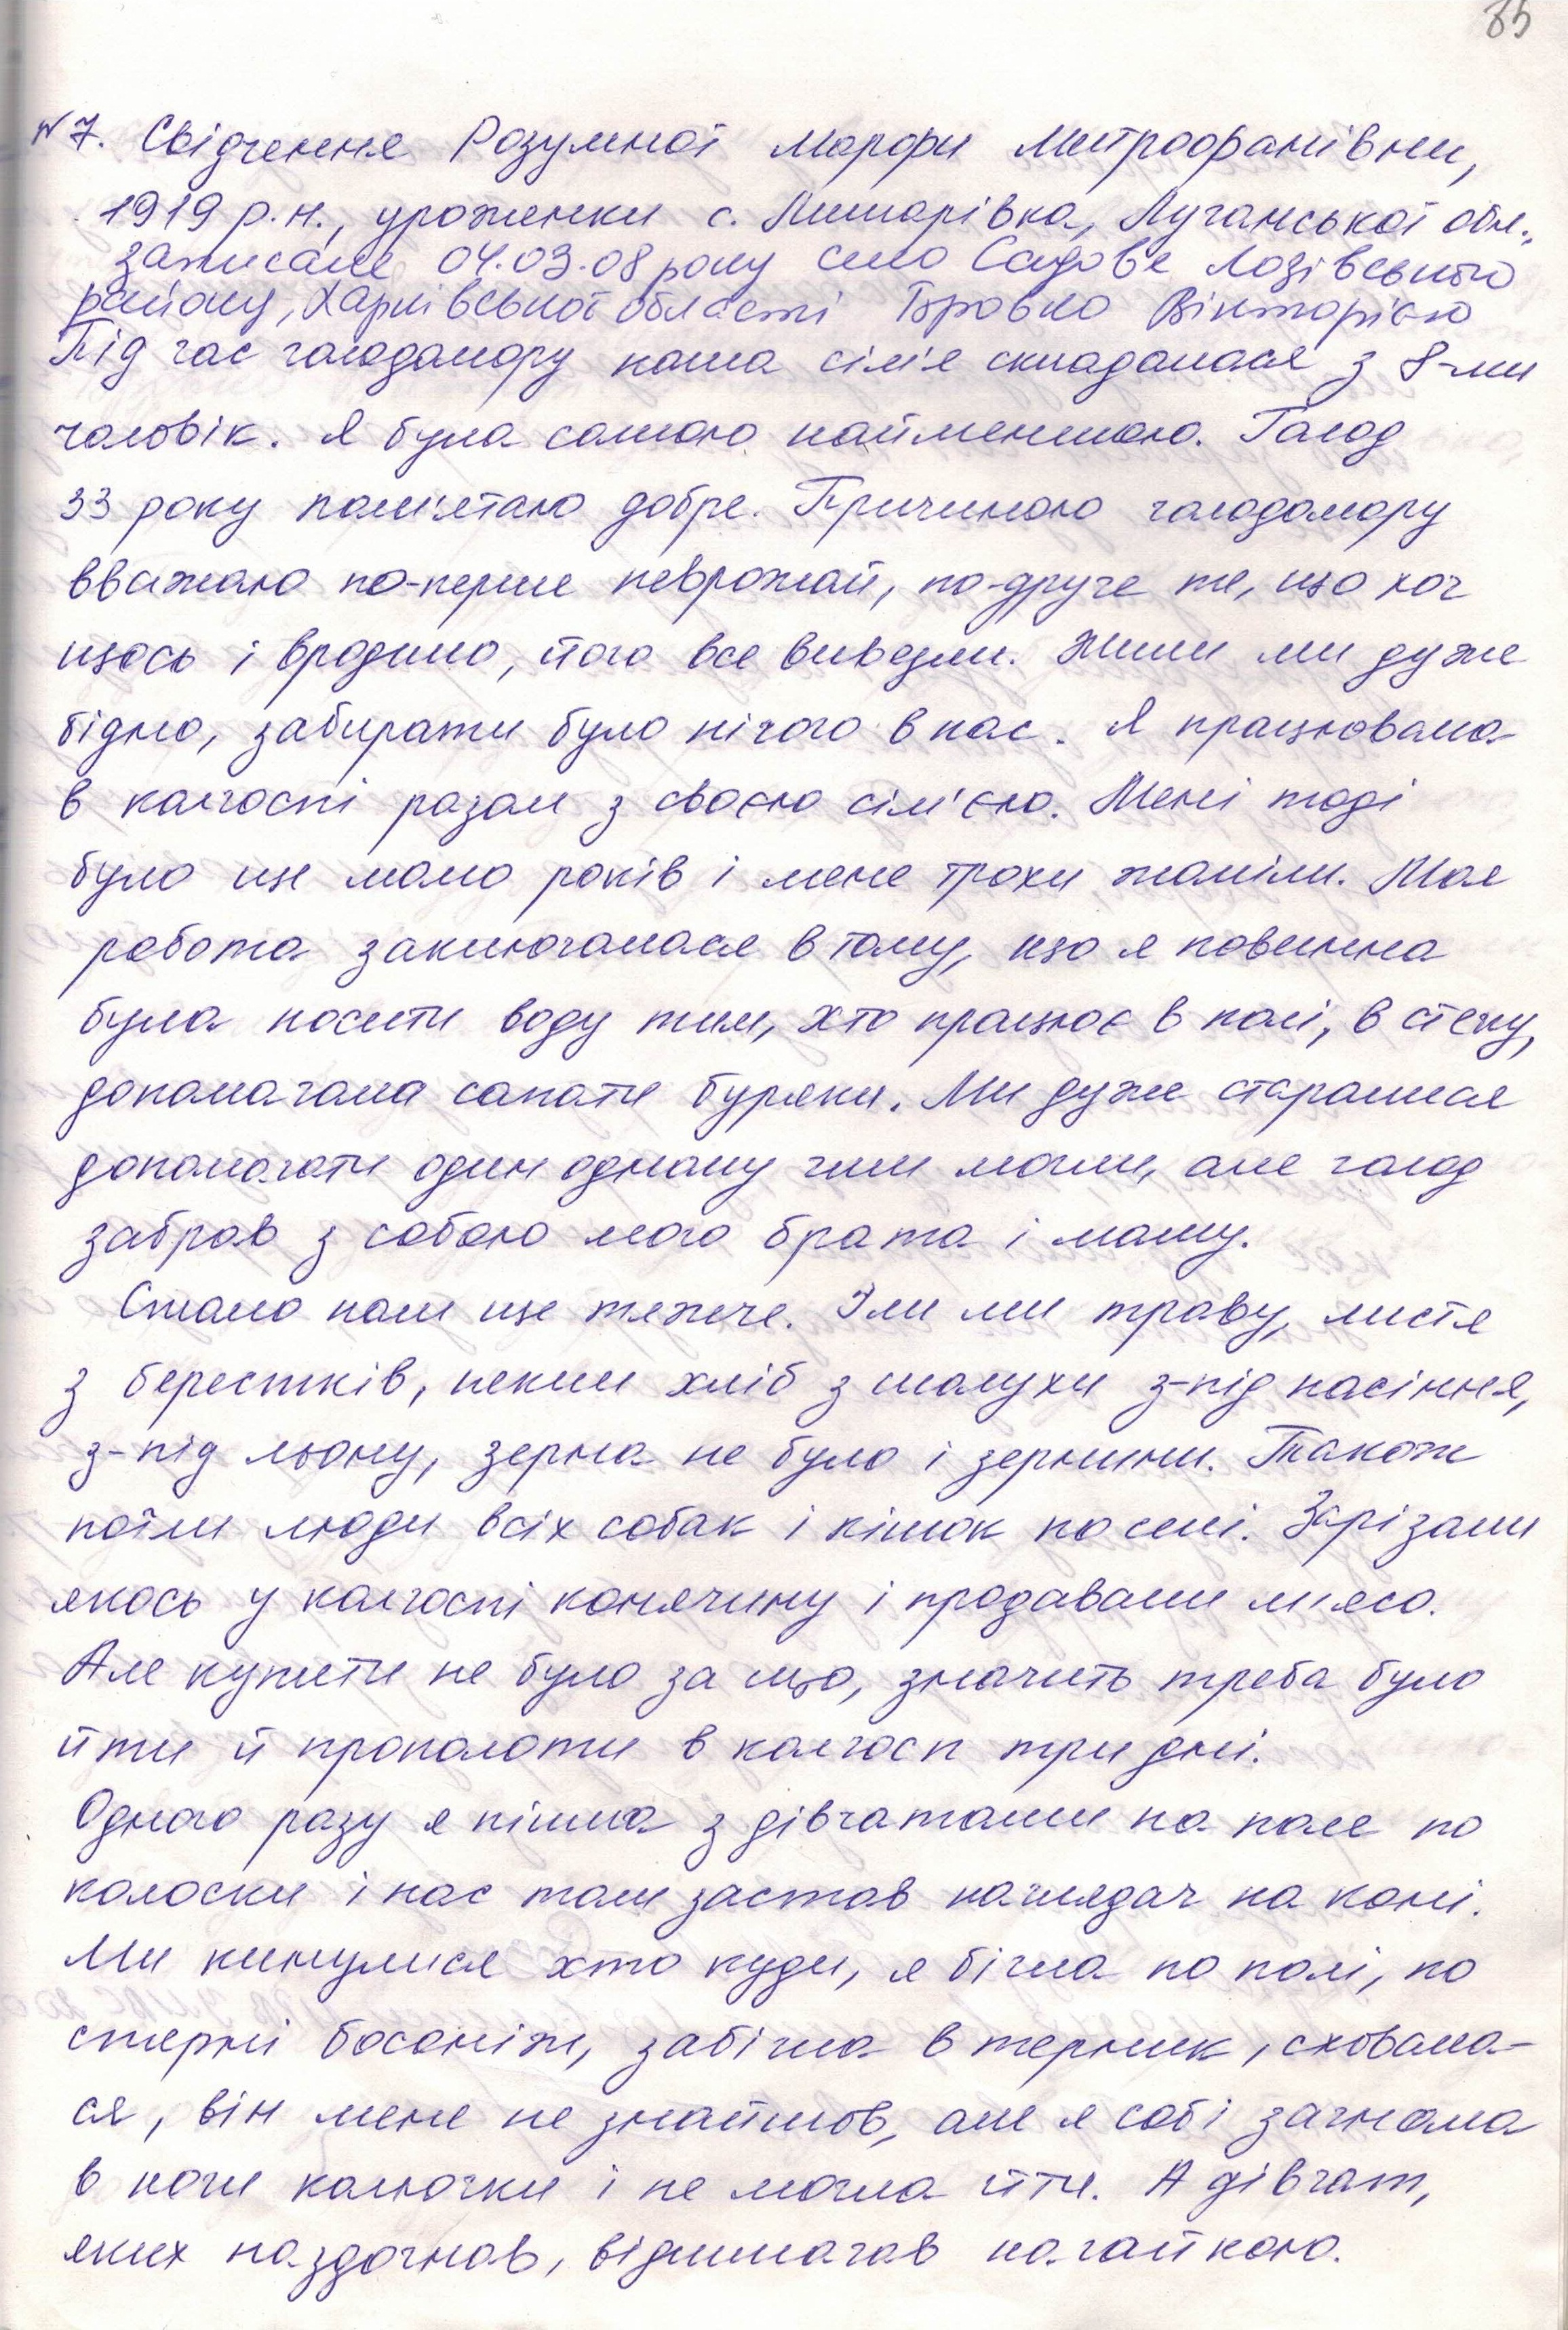 85
№7. Свідчення Розумної Марфи Митрофанівни,
1919 р.н., уроженки с. Лимарівка, Луганської обл.,
записане 04.03.08 року село Садове Лозівського
району, Харківської області Бровко Вікторією
Під час голодомору наша сім'я складалася з 8-ми
чоловік. Я була самою найменшою. Голод
33 року пам'ятаю добре. Причиною голодомору
вважаю по-перше неврожай, по-друге те, що хоч
щось і вродило, його все вивезли. Жили ми дуже
бідно, забирати було нічого в нас. Я працювала
в колгоспі разом з своєю сім'єю. Мені тоді
було ще мало років і мене трохи жаліли. Моя
робота заключалася в тому, що я повинна
була носити воду тим, хто працює в полі, в степу,
допомагала сапати буряки. Ми дуже старалися
допомогати один одному чим могли, але голод
забрав з собою мого брата і маму.
Стало нам ще тяжче. Їли ми траву, листя
з берестків, пекли хліб з шалухи з-під насіння,
з-під льону, зерна не було і зернини. Також
поїли люди всіх собак і кішок по селі. Зарізали
якось у колгоспі конячину і продавали м'ясо.
Але купити не було за що, значить треба було
йти й прополоти в колгосп три дні.
Одного разу я пішла з дівчатами на поле по
колоски і нас там застав наглядач на коні.
Ми кинулися хто куди, я бігла по полі, по
стерні босоніж, забігла в терник, сховала-
ся, він мене не знайшов, але я собі загнала
в ноги колючки і не могла йти. А дівчат,
яких наздогнав, відшмагав нагайкою.